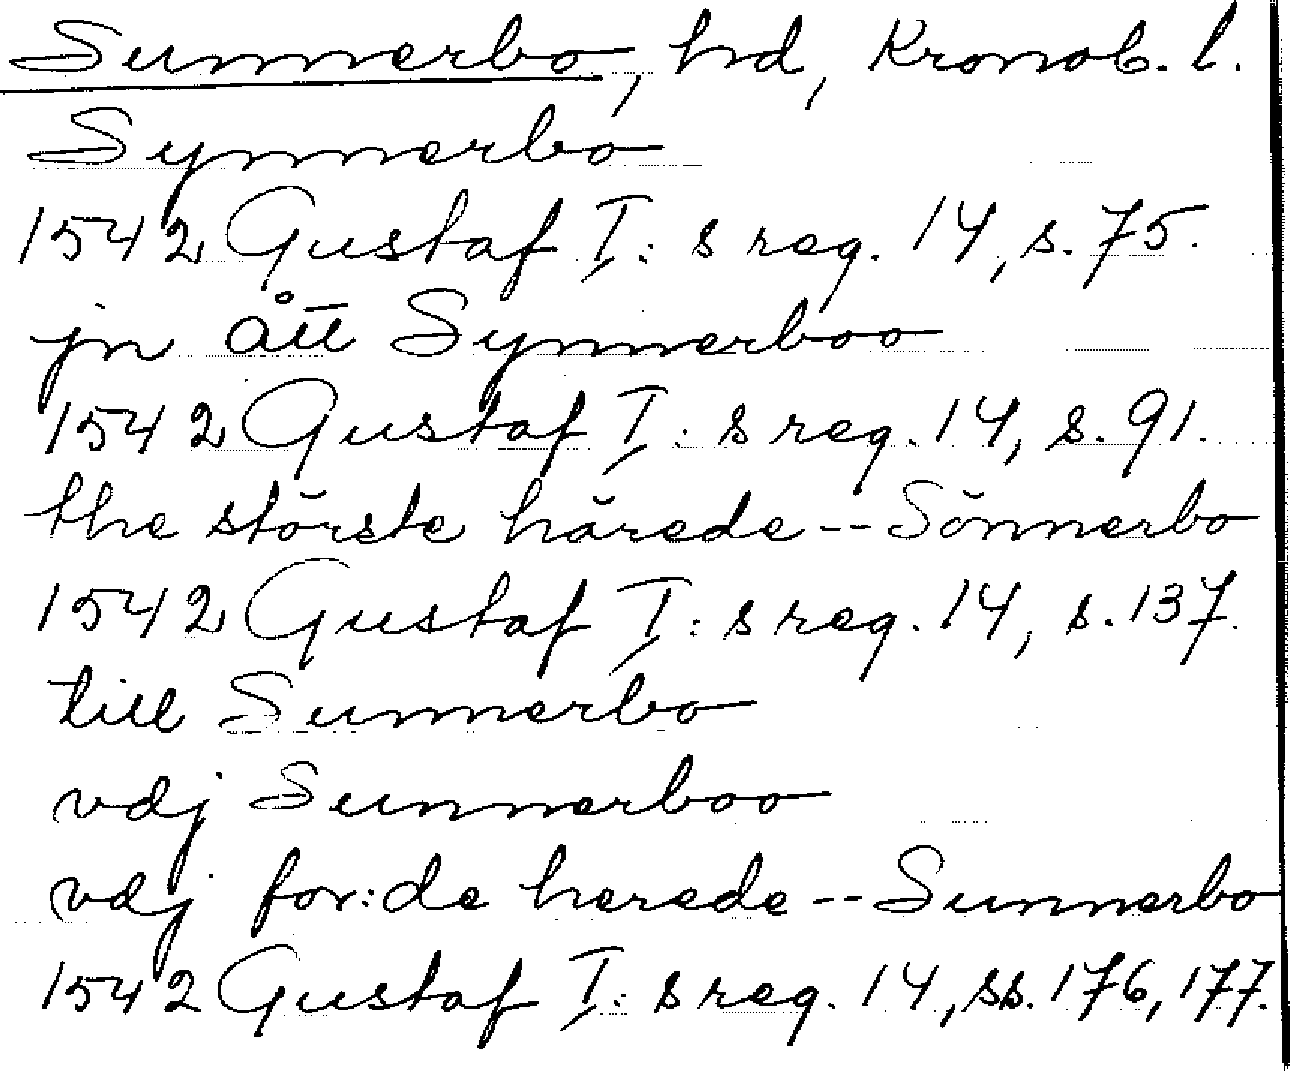 Sunnerbo, hd, Kronob. l.
Synnerbo
1542 Gustaf I: s reg. 14, s. 75.
jn ått Synnerboo
1542 Gustaf I: s reg. 14, s. 91.
the störste härede -- Sönnerbo
1542 Gustaf I: s reg. 14, s. 137.
till Sunnerbo
vdj Sunnerboo
vdj for:de herede -- Sunnerbo
1542 Gustaf I: s reg. 14, ss. 176, 177.